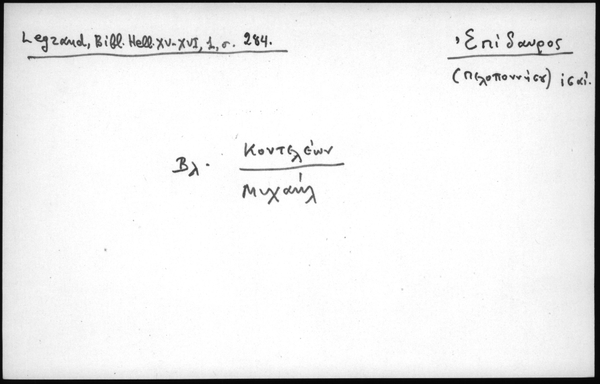 Legrand, Bibl. Hell. XV-XVI, 1, σ. 284.
Ἐπίδαυρος
(Πελοποννήσου)
Βλ. Κοντελέων
Μιχαήλ